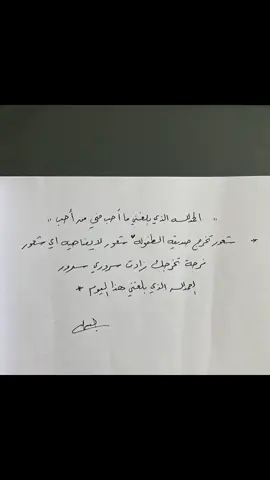 ،، الحمدلله الذي بلغني ما أحب في من أحب ،،
* شعور تخرج صديقة الطفولة شعور لا يضاهيه اي شعور
فرحة تخرجك زادت سروري سرور
الحمدلله الذي بلغني هذا اليوم *